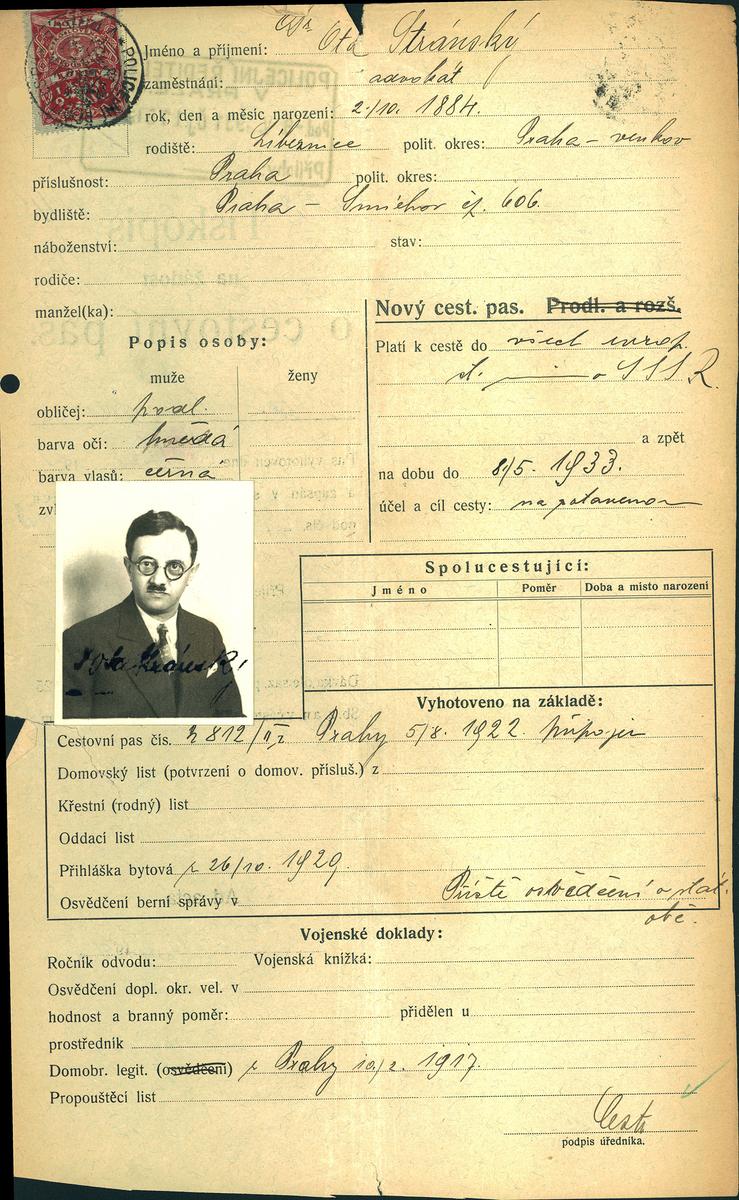 JUDr Ota Stránský
Jméno a příjmení:
zaměstnání: advokát
rok, den a měsíc narození: 2/10. 1884.
rodiště: Libeznice polit. okres: Praha – venkov
příslušnost: Praha polit. okres:
bydliště: Praha – Smíchov čp. 606.
náboženství: stav:
rodiče:
manžel(ka):
Nový cest. pas. Prodl. a rozš.
Popis osoby:
muže ženy
obličej: podl.
barva očí: hnědá
barva vlasů: černá
zvl
Platí k cestě do všech evrop.
st. SSSR.
a zpět
na dobu do 8/5. 1933.
účel a cíl cesty: na zotavenou
Spolucestující:
Jméno Poměr Doba a místo narození
Ota Stránský
Vyhotoveno na základě:
Cestovní pas čís. 812/II Prahy 5/8. 1922. připojen
Domovský list (potvrzení o domov. přísluš.) z
Křestní (rodný) list
Oddací list
Přihláška bytová z 26/10. 1929.
Osvědčení berní správy v
Příště osvědčení o stát.
obč.
Vojenské doklady:
Ročník odvodu: Vojenská knížka:
Osvědčení dopl. okr. vel. v
hodnost a branný poměr: přidělen u
prostředník
Domobr. legit. (osvědčení) z Prahy 10/2. 1917.
Propouštěcí list
podpis úředníka.